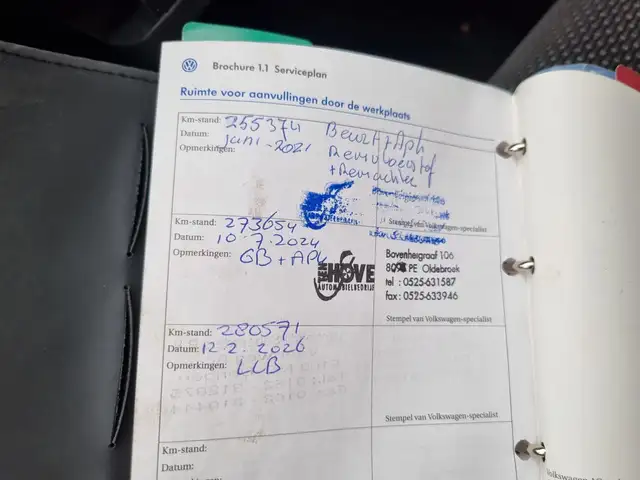 Brochure 1.1 Serviceplan
Ruimte voor aanvullingen door de werkplaats
Km-stand: 255374
Datum: juni-2021
Opmerkingen:
Beurt + Aph
Remvloeistof
+ Remachter
Stempel van Volkswagen-specialist
Km-stand: 273654
Datum: 10-7-2024
Opmerkingen: GB + APK
HOVE
AUTOMOBIELBEDRIJF
Bovenheigraaf 106
PE Oldebroek
tel : 0525-631587
fax : 0525-633946
Stempel van Volkswagen-specialist
Km-stand: 280571
Datum: 12-2-2026
Opmerkingen: LLB
Stempel van Volkswagen-specialist
Km-stand:
Datum: